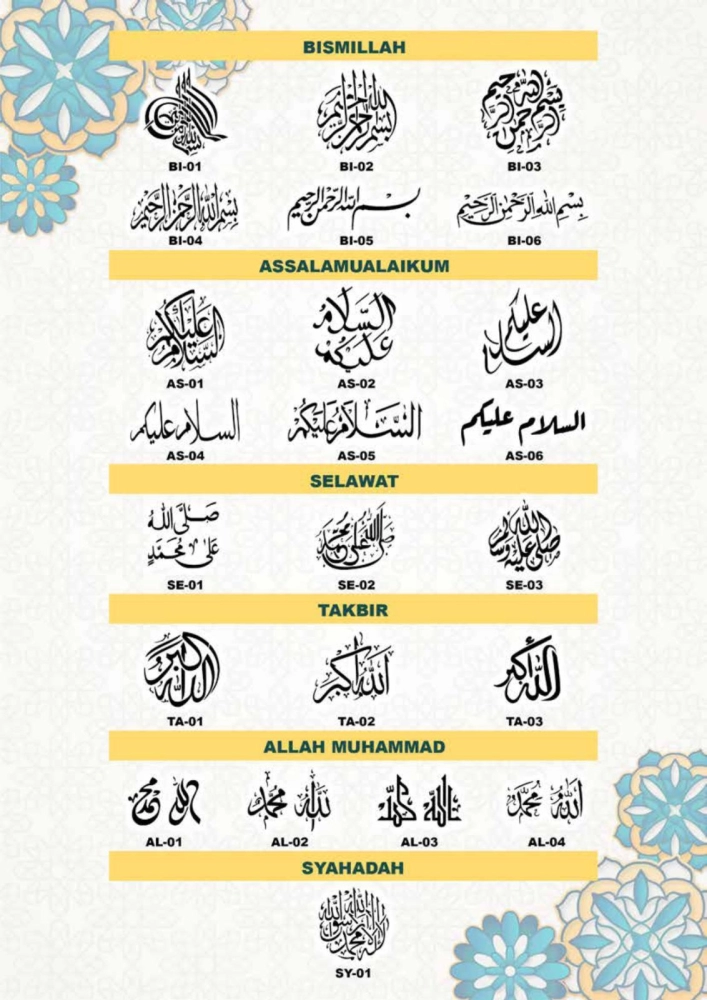 BISMILLAH
BI-01 BI-02 BI-03
بسم الله الرحمن الرحيم
بســـم الله الرحمن الرحيم
بِسْمِ اللهِ الرَّحْمٰنِ الرَّحِيْمِ
BI-04 BI-05 BI-06
ASSALAMUALAIKUM
السلام عليكم
السلام عليكم
السلام عليكم
AS-01 AS-02 AS-03
السلام عليكم
السلام عليكم
السلام عليكم
AS-04 AS-05 AS-06
SELAWAT
صَلَّى اللهُ
عَلَى مُحَمَّدٍ
صلى الله على محمد
صلى الله عليه وسلم
SE-01 SE-02 SE-03
TAKBIR
الله أكبر
الله أكبر
الله أكبر
TA-01 TA-02 TA-03
ALLAH MUHAMMAD
الله محمد
الله محمد
الله محمد
الله محمد
AL-01 AL-02 AL-03 AL-04
SYAHADAH
لا إله إلا الله محمد رسول الله
SY-01